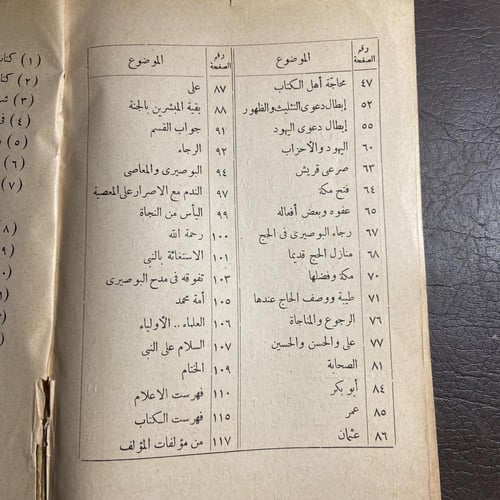 رقم الصفحة الموضوع
٤٧ محاجّة أهل الكتاب
٥٢ إبطال دعوى التثليث والظهور
٥٥ إبطال دعوى اليهود
٦٠ اليهود والأحزاب
٦٣ صرعى قريش
٦٤ فتح مكة
٦٥ عفوه وبعض أفعاله
٦٧ رجاء البوصيرى فى الحج
٦٨ منازل الحج قديما
٧٠ مكة وفضلها
٧١ طيبة ووصف الحاج عندها
٧٦ الرجوع والمناجاة
٧٧ على والحسن والحسين
٨١ الصحابة
٨٤ أبو بكر
٨٥ عمر
٨٦ عثمان
رقم الصفحة الموضوع
٨٧ على
٨٨ بقية المبشرين بالجنة
٩١ جواب القسم
٩٢ الرجاء
٩٤ البوصيرى والمعاصى
٩٧ الندم مع الاصرار على المعصية
٩٩ اليأس من النجاة
١٠٠ رحمة الله
١٠١ الاستغاثة بالنبى
١٠٣ تفوقه فى مدح البوصيرى
١٠٥ أمة محمد
١٠٦ العلماء .. الأولياء
١٠٧ السلام على النبى
١٠٩ الختام
١١٠ فهرست الاعلام
١١٥ فهرست الكتاب
١١٧ من مؤلفات المؤلف
(١) كتاب
(٢) كتا
(٣)
(٤)
(٥)
(٦)
(٧)
(٨
(٩
(١٠
(١
(١
(١